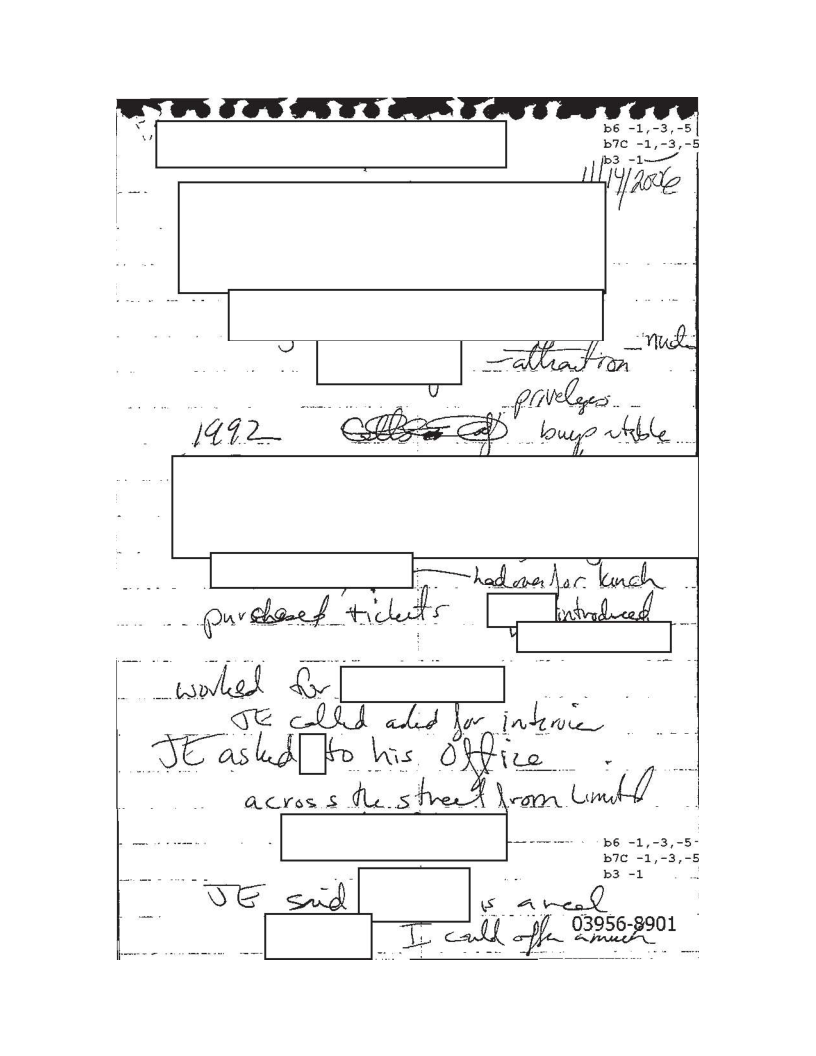 b6 -1,-3,-5
b7C -1,-3,-5
b3 -1
11/14/2006
attraction
priveleges
1992
buys
had over for lunch
purchased tickets
introduced
worked for
JE called asked for
JE asked to his office
across the street from Limited
b6 -1,-3,-5
b7C -1,-3,-5
b3 -1
JE said is a real
03956-8901
I could offer a much